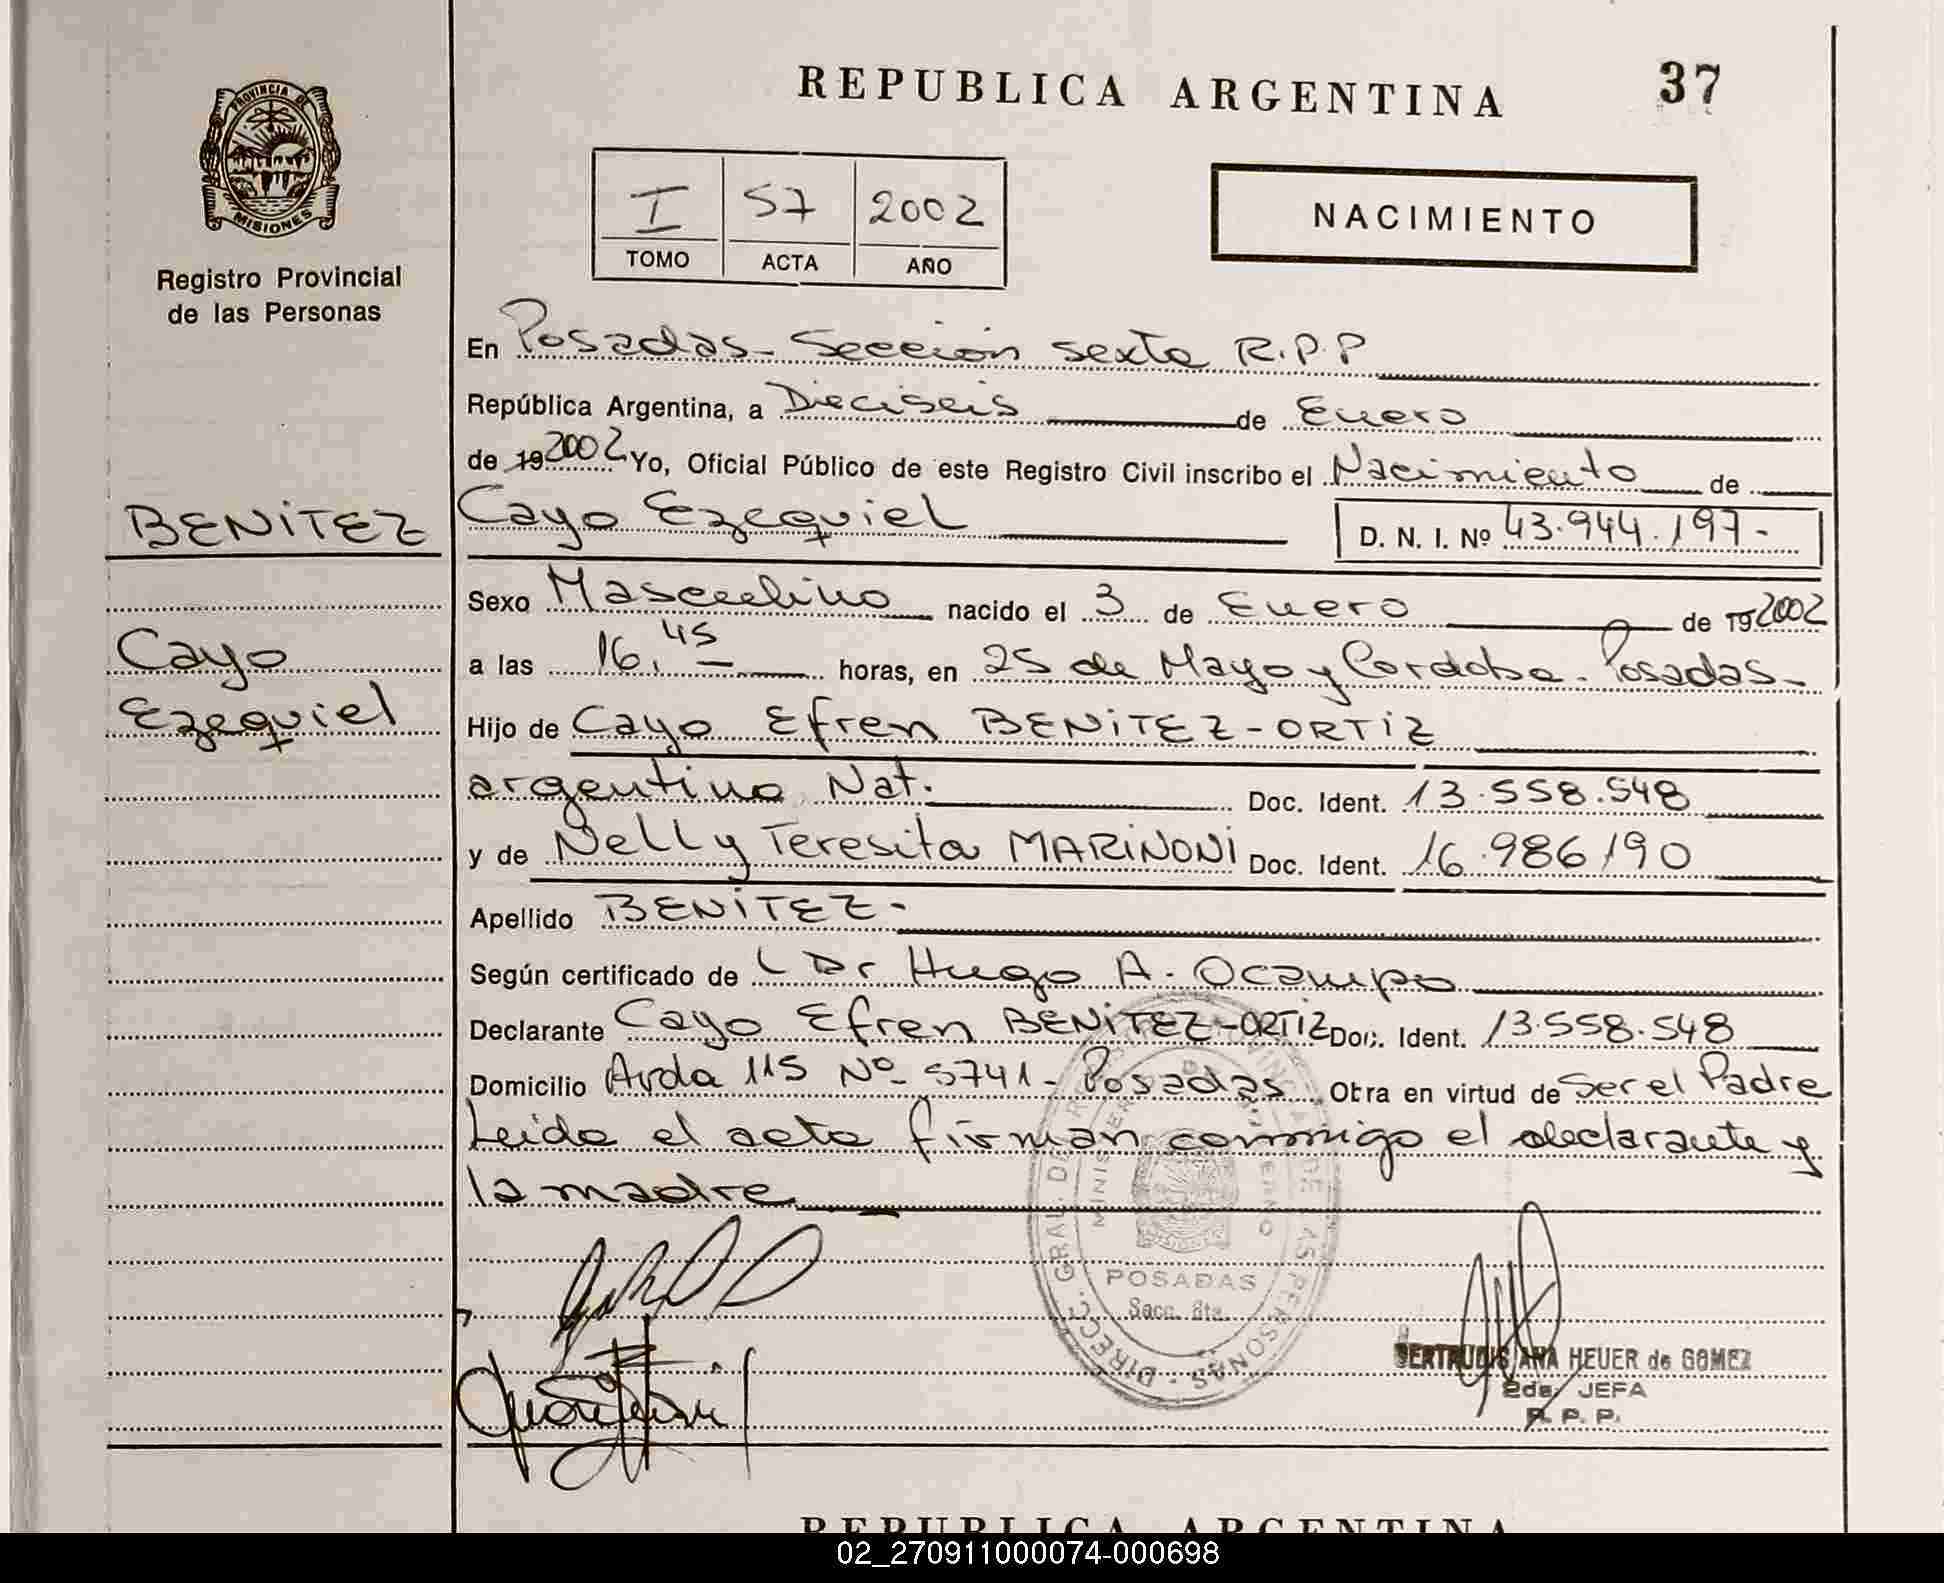 REPUBLICA ARGENTINA 37
PROVINCIA DE
MISIONES
Registro Provincial
de las Personas
I 57 2002
TOMO ACTA AÑO
NACIMIENTO
En Posadas - Sección sexta R.P.P
República Argentina, a Dieciseis de Enero
de 19 2002 Yo, Oficial Público de este Registro Civil inscribo el Nacimiento de
BENITEZ
Cayo Ezequiel D. N. I. Nº 43.944.197-
Sexo Masculino nacido el 3 de Enero de 19 2002
Cayo
Ezequiel
a las 16,45 horas, en 25 de Mayo y Cordoba - Posadas-
Hijo de Cayo Efren BENITEZ-ORTIZ
argentino Nat. Doc. Ident. 13.558.548
y de Nelly Teresita MARINONI Doc. Ident. 16.986190
Apellido BENITEZ-
Según certificado de l Dr Hugo A. Ocampo
Declarante Cayo Efren BENITEZ-ORTIZ Doc. Ident. 13.558.548
Domicilio Avda 115 Nº 5741 - Posadas Obra en virtud de Ser el Padre
Leido el acta firman conmigo el declarante y
la madre
DIRECC. GRAL. DE PROVINCIA DE LAS PERSONAS
POSADAS
Secc. 6ta.
GERTRUDIS ANA HEUER de GOMEZ
2da. JEFA
R. P. P.
REPUBLICA ARGENTINA
02_270911000074-000698